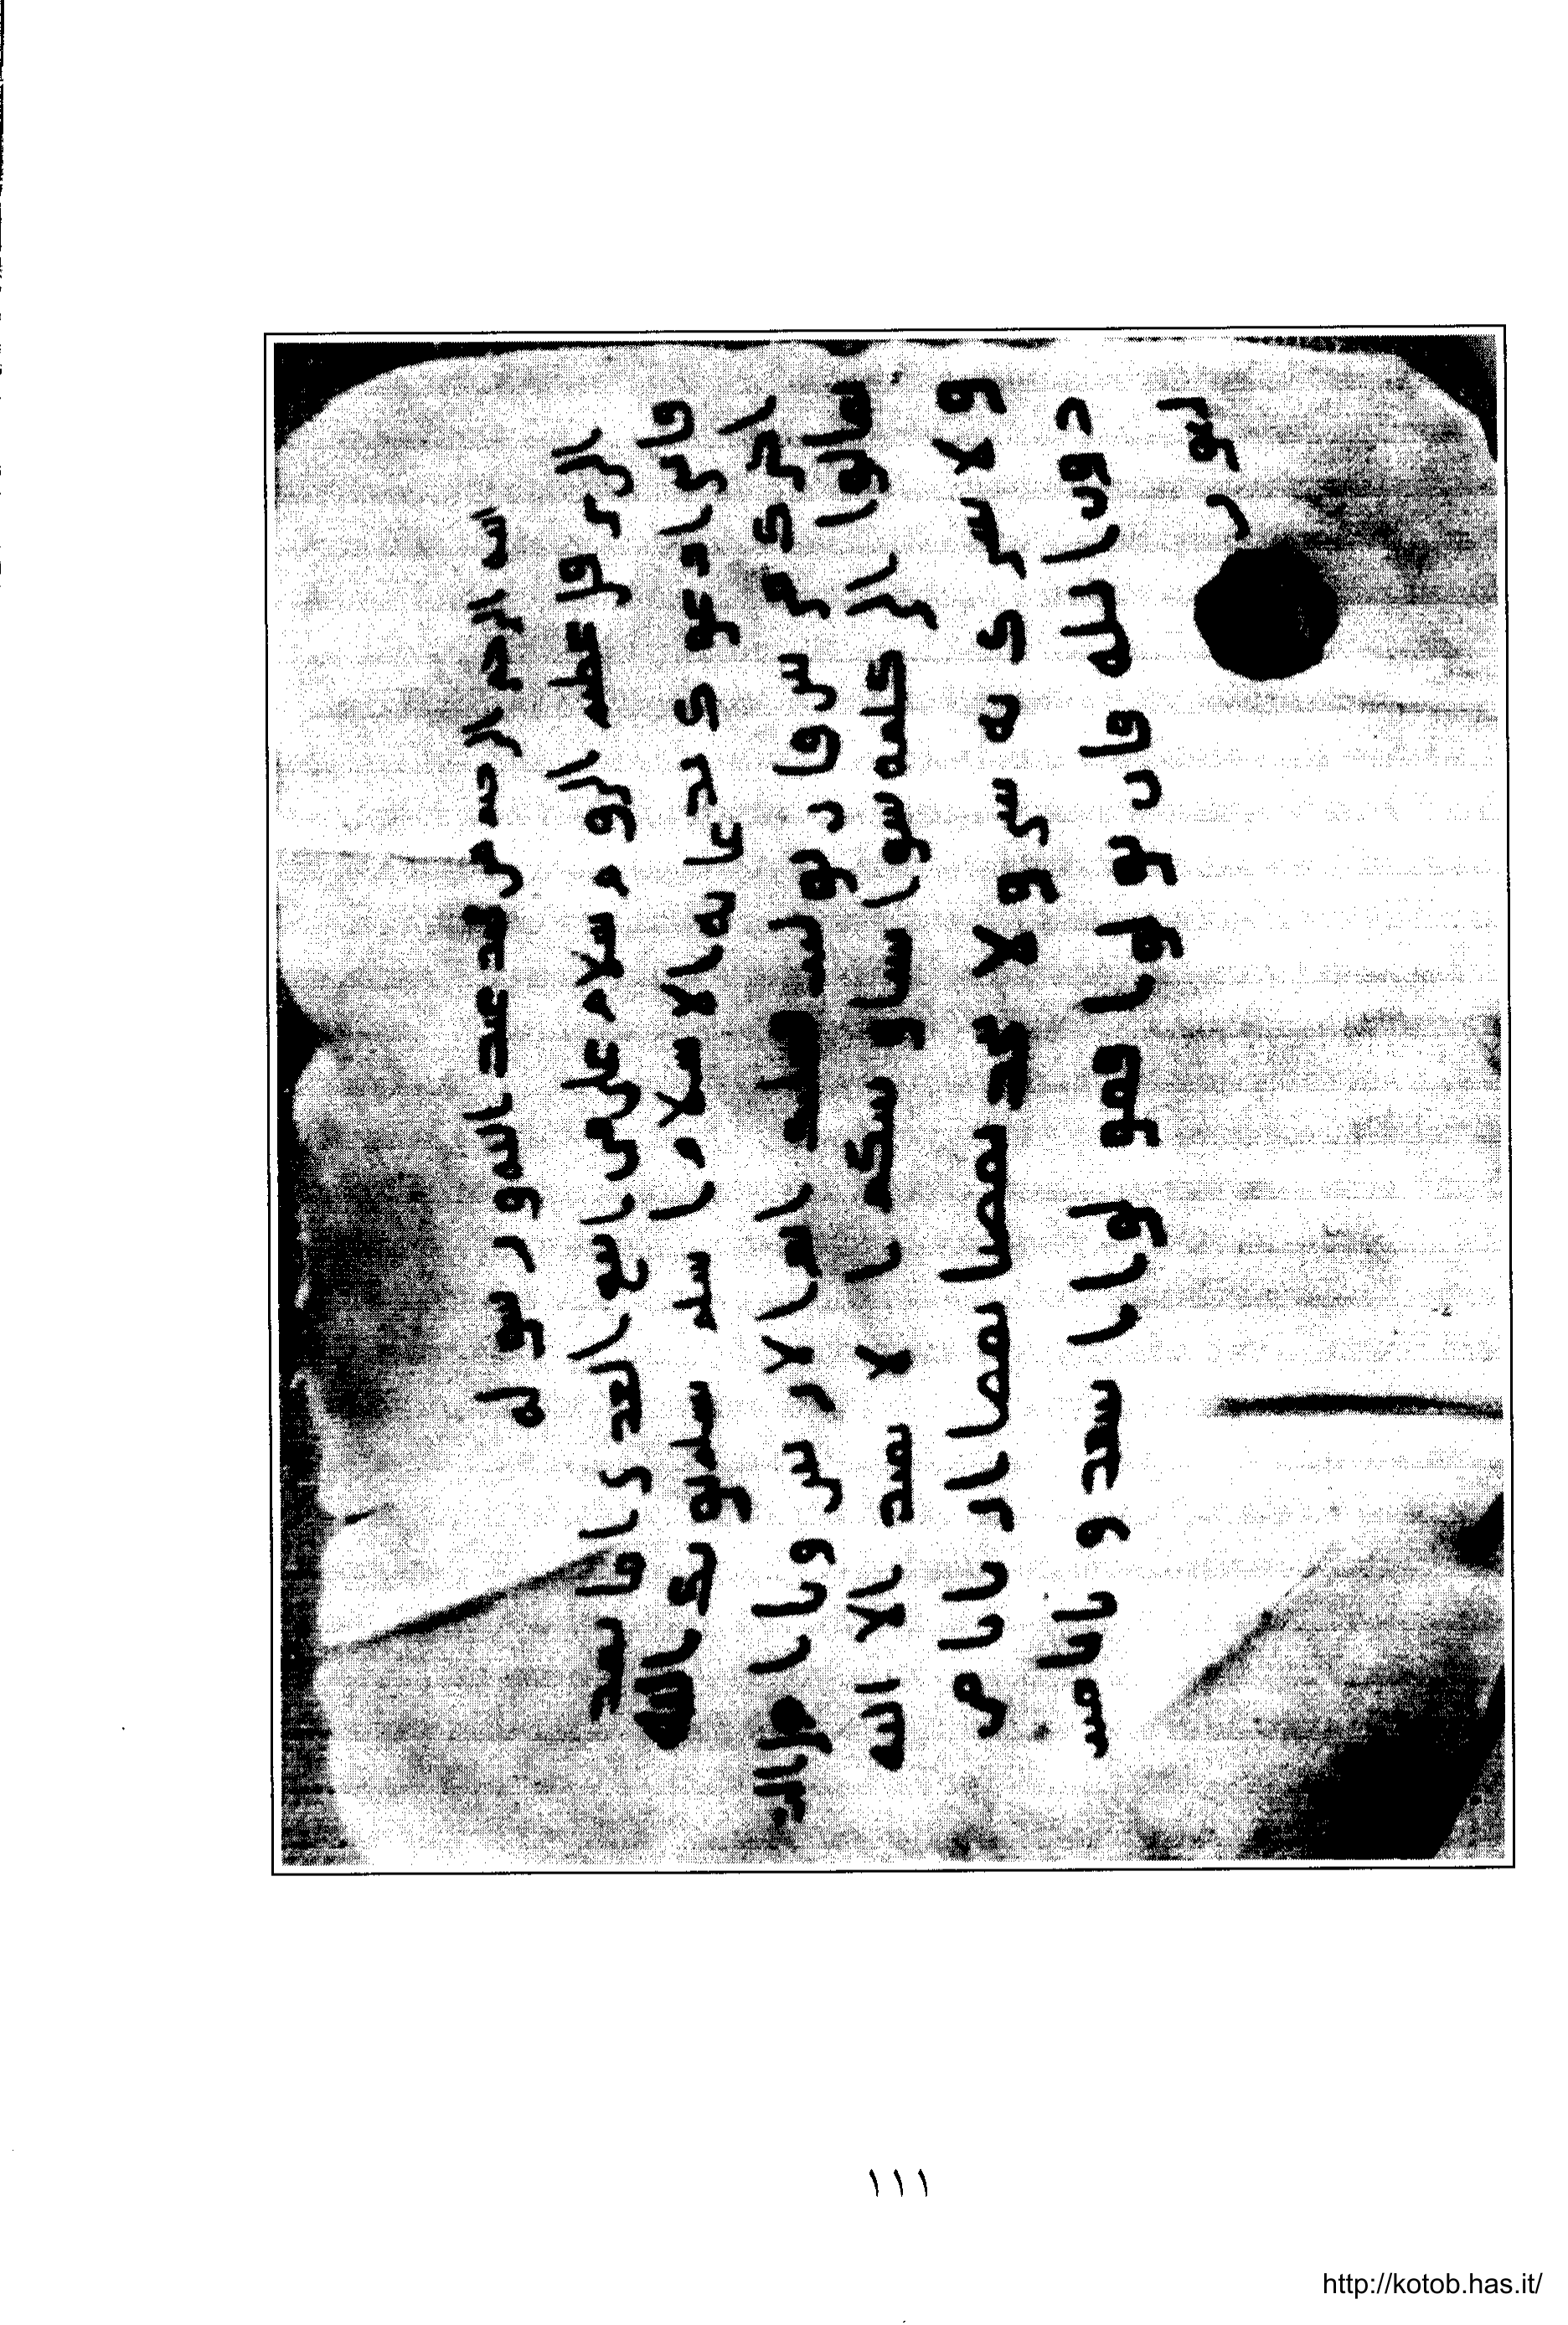 الله الرحمن الرحيم من محمد عبد الله و رسوله
الى هرقل عظيم الروم سلام على من اتبع الهدى اما بعد
فانى ادعوك بدعاية الاسلام اسلم تسلم يوتك الله
اجرك مرتين فان توليت فعليك اثم الاريسيين ويا اهل
تعالوا الى كلمة سوا بيننا وبينكم الا نعبد الا الله
ولا نشرك به شيئا ولا يتخذ بعضنا بعضا اربابا من
دون الله فان تولوا فقولوا اشهدوا بانا مس
لمون
١١١
http://kotob.has.it/